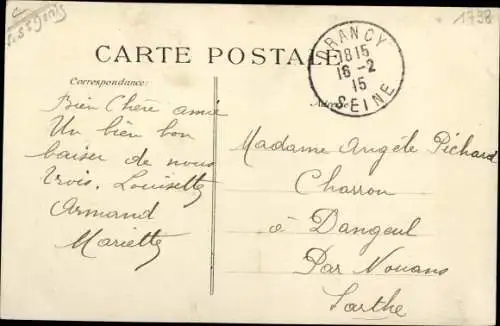 1798
CARTE POSTALE
DRANCY
1815
16-2
15
SEINE
Correspondance:
Adresse
Bien Chère amie
Un bien bon
baiser de nous
trois. Louisette
Armand
Mariette
Madame Angèle Pichard
Charron
à Dangeul
Par Nouans
Sarthe